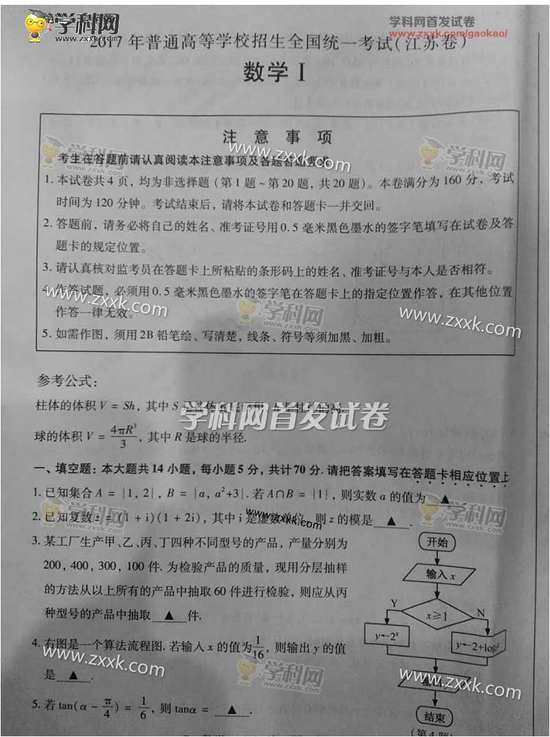 学科网首发试卷
www.zxxk.com/gaokao/
学科网
2017年普通高等学校招生全国统一考试(江苏卷)
数学 I
注意事项
考生在答题前请认真阅读本注意事项及各题答题要求
1. 本试卷共4页，均为非选择题（第1题~第20题，共20题）。本卷满分为160分，考试
时间为120分钟。考试结束后，请将本试卷和答题卡一并交回。
2. 答题前，请务必将自己的姓名、准考证号用0.5毫米黑色墨水的签字笔填写在试卷及答
题卡的规定位置。
3. 请认真核对监考员在答题卡上所粘贴的条形码上的姓名、准考证号与本人是否相符。
4. 作答试题，必须用0.5毫米黑色墨水的签字笔在答题卡上的指定位置作答，在其他位置
作答一律无效。
5. 如需作图，须用2B铅笔绘、写清楚，线条、符号等须加黑、加粗。
www.zxxk.com
学科网
www.zxxk.com
参考公式:
柱体的体积 V = Sh, 其中 S
学科网首发试卷
球的体积 V = 4πR³/3, 其中 R 是球的半径.
一、填空题: 本大题共14小题, 每小题5分, 共计70分. 请把答案填写在答题卡相应位置上
1. 已知集合 A = {1, 2}, B = {a, a²+3}. 若 A∩B = {1}, 则实数 a 的值为 ▲
2. 已知复数 z = (1 + i)(1 + 2i), 其中 i 是虚数单位, 则 z 的模是 ▲ .
www.zxxk.com
3. 某工厂生产甲、乙、丙、丁四种不同型号的产品, 产量分别为
200, 400, 300, 100 件. 为检验产品的质量, 现用分层抽样
的方法从以上所有的产品中抽取 60 件进行检验, 则应从丙
种型号的产品中抽取 ▲ 件.
4. 右图是一个算法流程图. 若输入 x 的值为 1/16, 则输出 y 的值
是 ▲ .
5. 若 tan(α − π/4) = 1/6, 则 tanα = ▲ .
开始
输入 x
Y
x≥1
N
y←2ˣ
y←2+log
结束
学科网
www.zxxk.com
学科网
www.zxxk.com